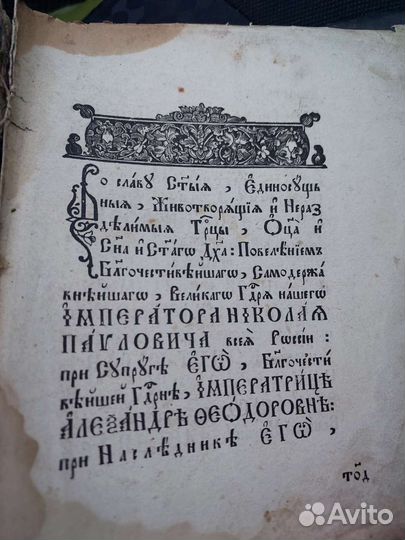 Во славу Ст҃ыѧ, Єдиносущ
ныѧ, Животворѧщїѧ и Нераз
дѣлимыѧ Трⷪ҇цы, Ѻц҃а и
Сн҃а и Ст҃агѡ Дх҃а: Повелѣнїемъ
Благочестивѣйшагѡ, Самодержа
внѣйшагѡ, Великагѡ Гдⷭ҇рѧ нашегѡ
ІМПЕРАТОРА НІКОЛАѦ
ПАѴЛОВИЧА всеѧ Рѡссїи:
при Сꙋпрꙋгѣ ЄГѠ̀, Благочести
вѣйшей Гдⷭ҇рнѣ, ІМПЕРАТРИЦѢ
АЛЕѮАНДРѢ ѲЕОДОРОВНѢ:
при Наслѣдникѣ ЄГѠ̀,
Avito